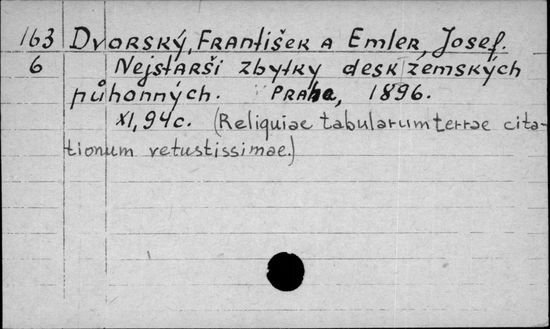 163 Dvorský, František a Emler, Josef.
6 Nejstarši zbytky desk zemských
půhonných. Praha, 1896.
XI, 94c. (Reliquiae tabularum terrae cita-
tionum vetustissimae.)